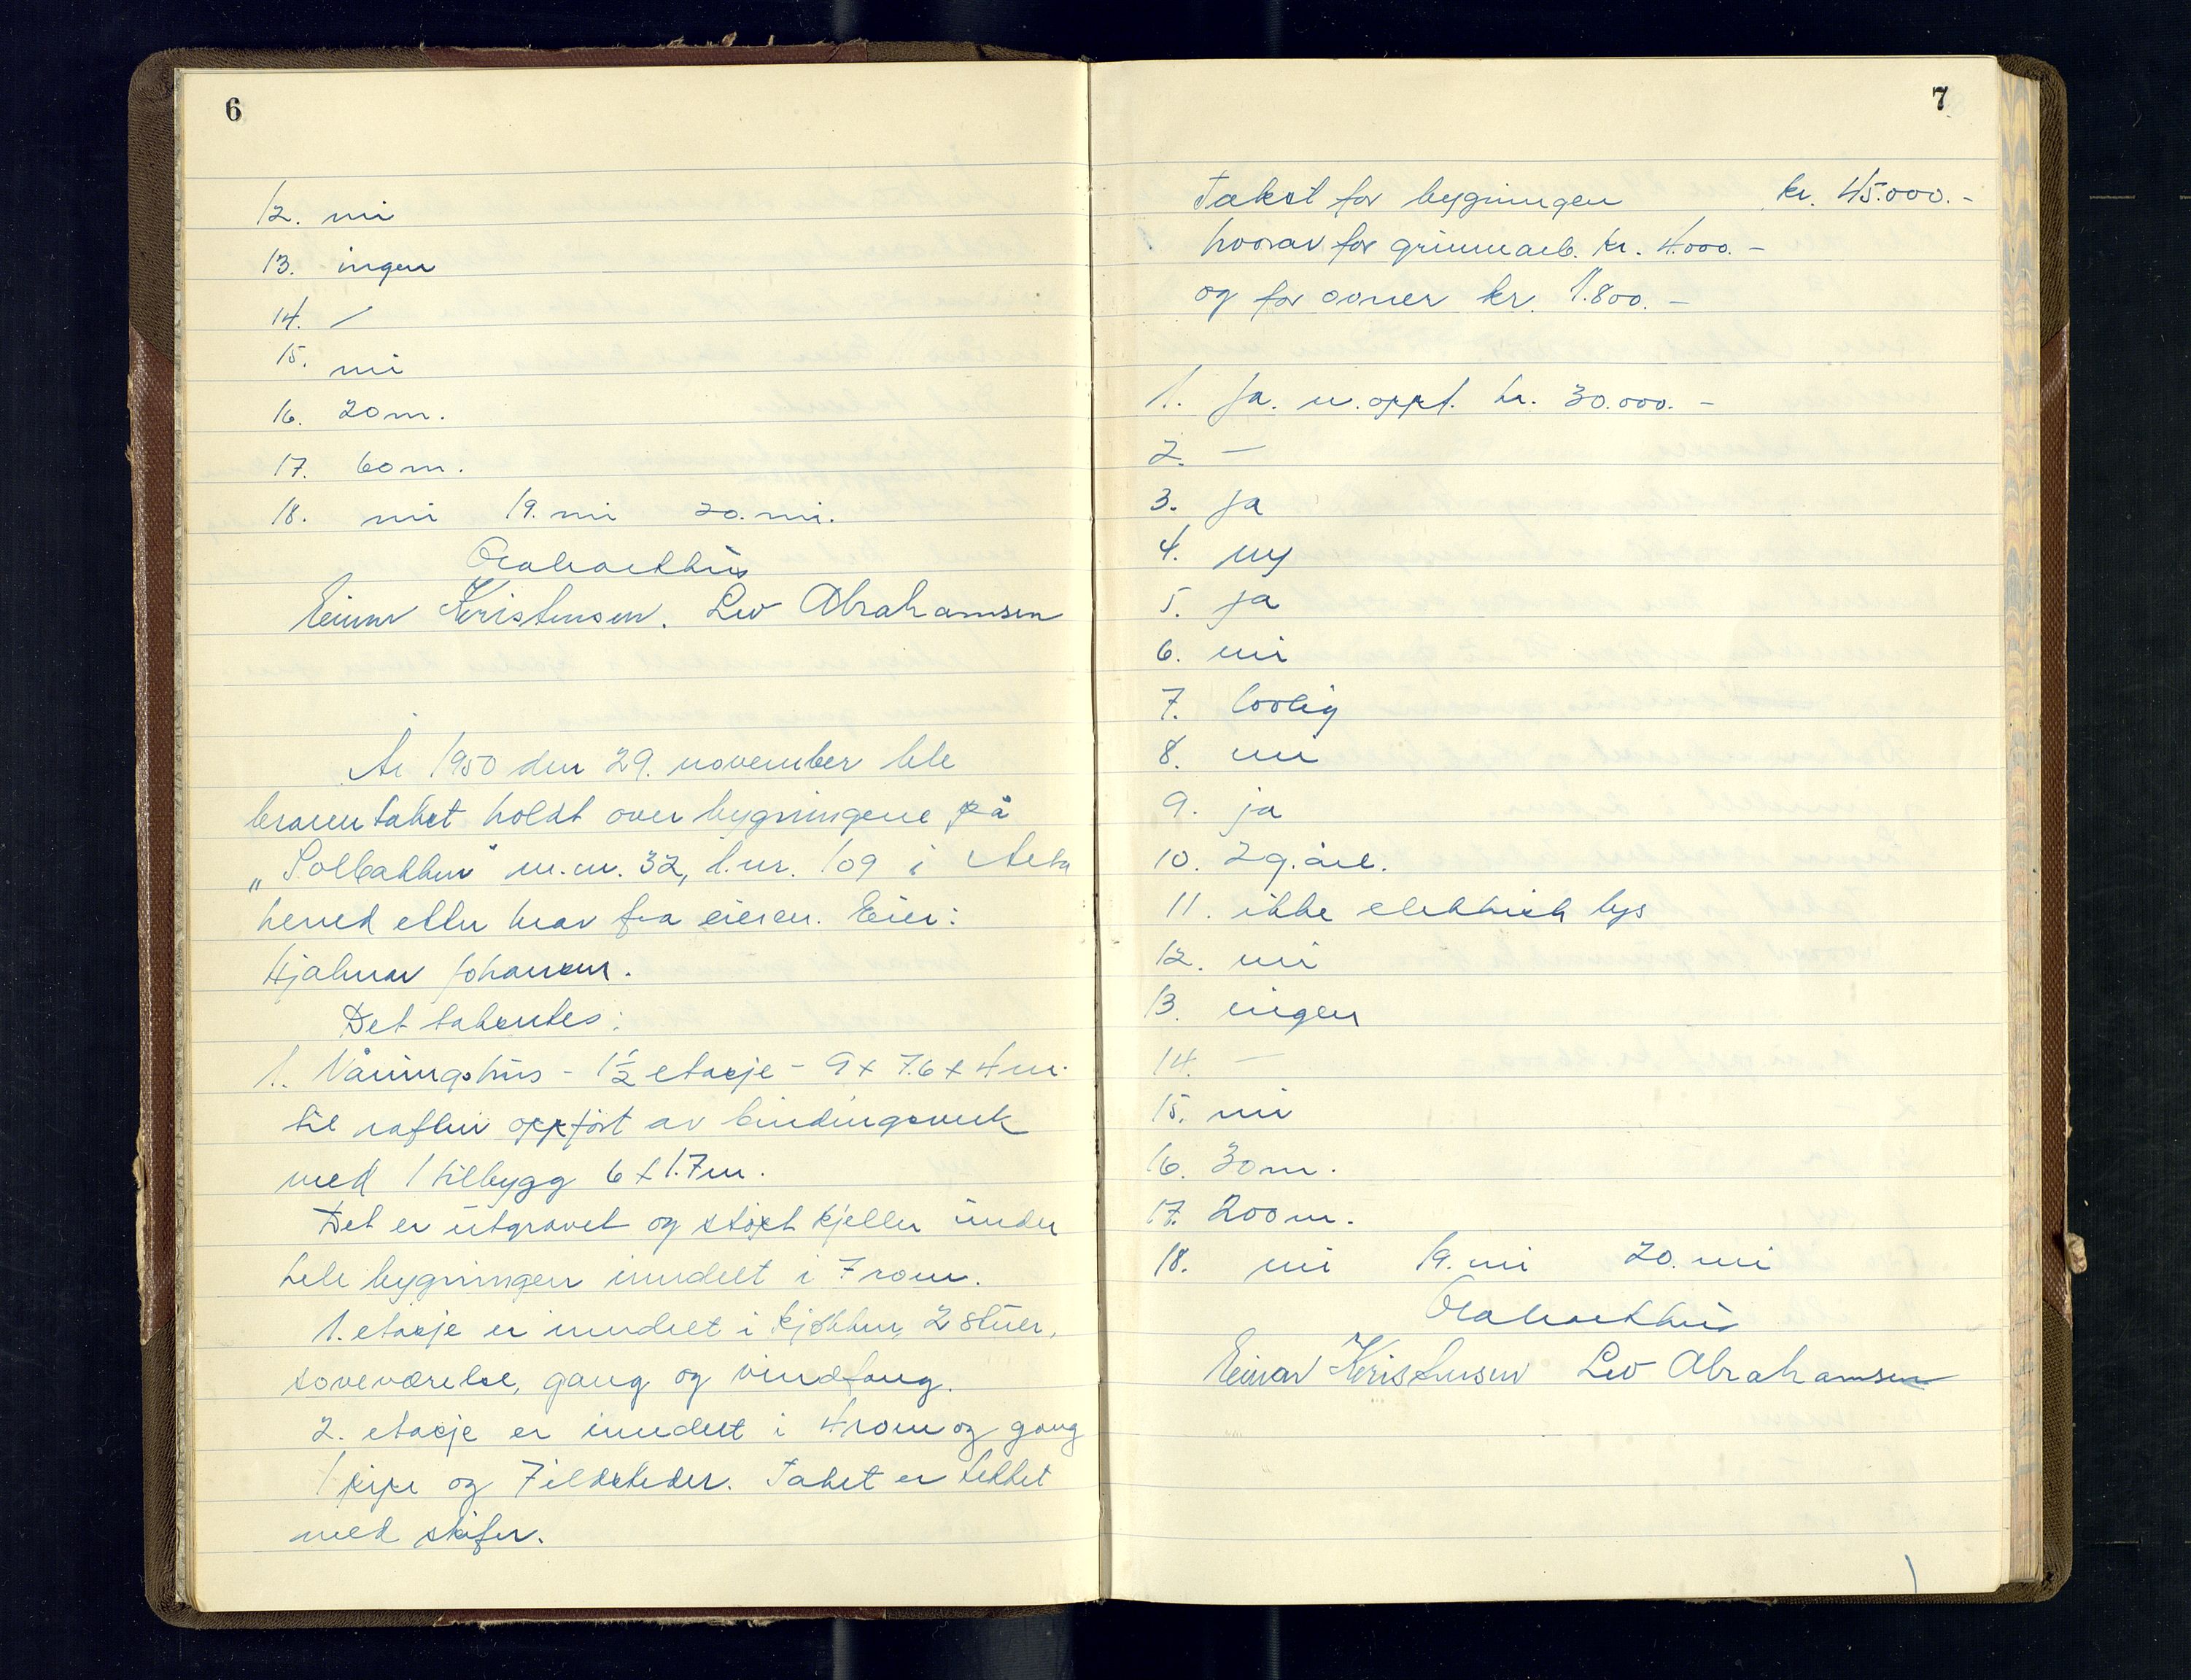 6
12. nei
13. ingen
14. /
15. nei
16. 20 m.
17. 60 m.
18. nei 19. nei 20. nei.
Einar Kristensen. Leo Abrahamsen
År 1950 den 29. november ble
branntakst holdt over bygningene på
„Solbakken" m.nr. 32, l.nr. 109 i
herred etter krav fra eieren. Eier:
Hjalmar Johansen.
Det takseres:
1. Våningshus - 1½ etasje - 9 x 7.6 x 4 m.
til raften oppført av bindingsverk
med 1 tilbygg 6 x 1.7 m.
Det er utgravet og støpt kjeller under
hele bygningen inndelt i 7 rom.
1. etasje er inndelt i kjøkken, 2 stuer,
soveværelse, gang og vindfang.
2. etasje er inndelt i 4 rom og gang
1 pipe og 7 ildsteder. Taket er tekket
med skifer.
7
Takst for bygningen kr. 45.000.-
hvorav for grunnarb. kr. 4.000. -
og for ovner kr. 1.800. -
1. Ja. n. oppf. kr. 30.000. -
2. —
3. ja
4. ny
5. ja
6. nei
7. lovlig
8. nei
9. ja
10. 2 g. årl.
11. ikke elektrisk lys
12. nei
13. ingen
14. —
15. nei
16. 30 m.
17. 200 m.
18. nei 19. nei 20. nei
Einar Kristensen Leo Abrahamsen